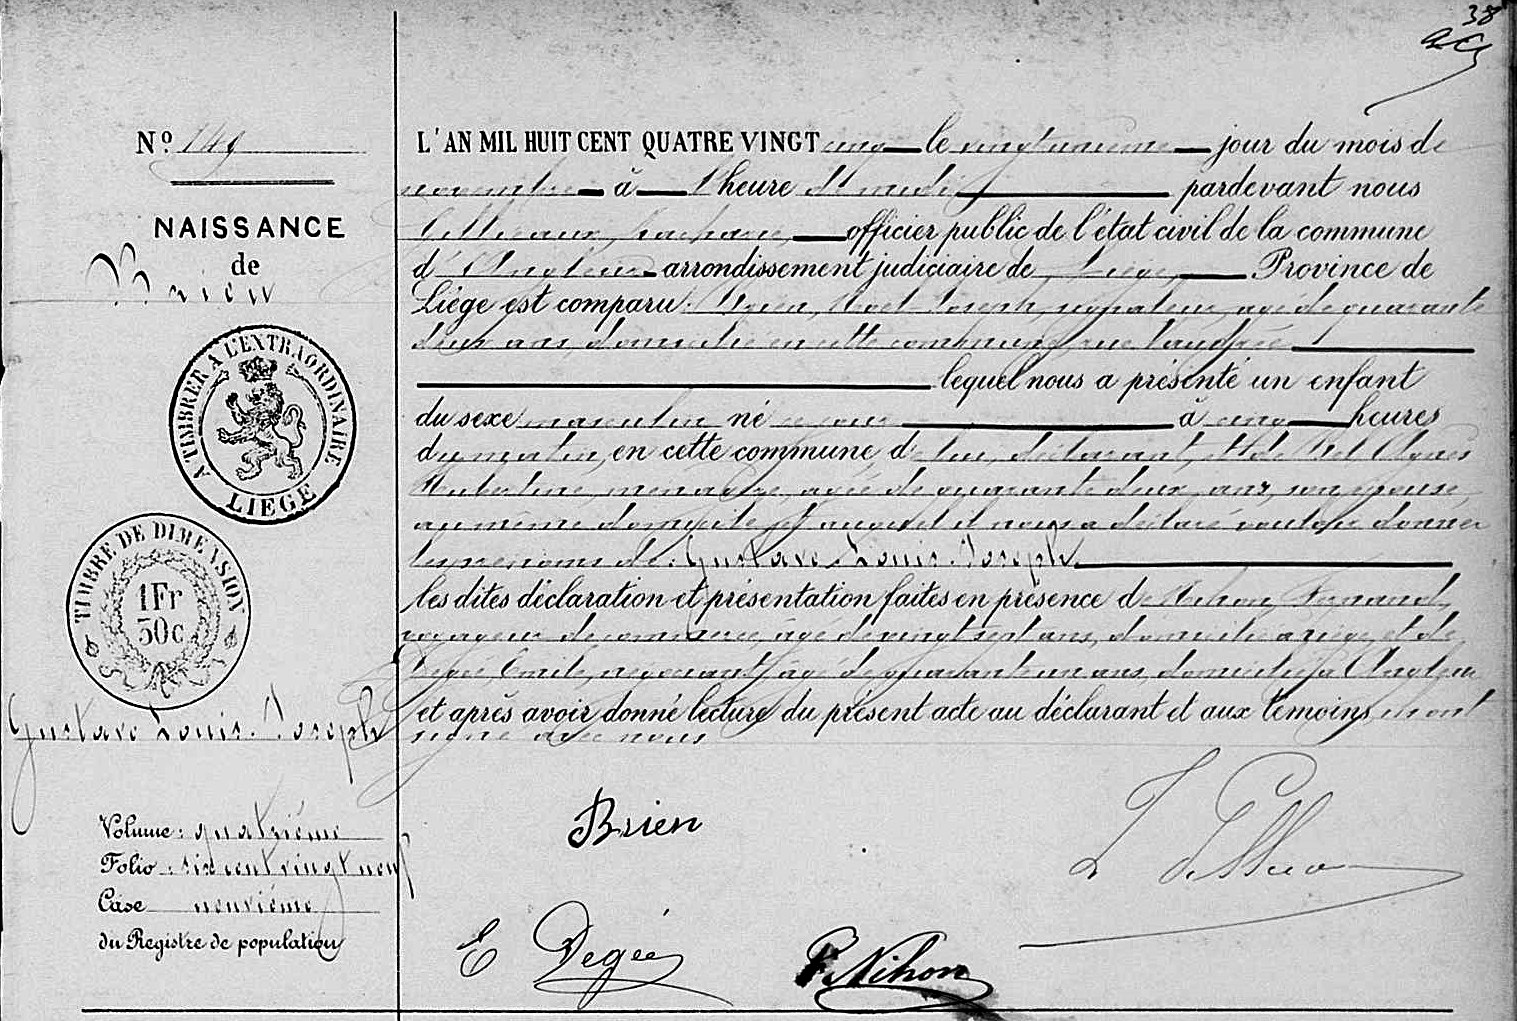 38
Nº 149
NAISSANCE
de
Brien
A TIMBRER A L'EXTRAORDINAIRE
LIEGE
TIMBRE DE DIMENSION
1Fr
50c
Gustave Louis Joseph
Volume : quatrième
Folio : six cent vingt neuf
Case neuvième
du Registre de population
L'AN MIL HUIT CENT QUATRE VINGT cinq le vingt unième jour du mois de
novembre à l'heure de midi pardevant nous
Zacharie officier public de l'état civil de la commune
d'Angleur arrondissement judiciaire de Liége, Province de
Liége est comparu : Brien, Noël Joseph, âgé de quarante
deux ans, domicilié en cette commune, rue
lequel nous a présenté un enfant
du sexe masculin né ce jour à cinq heures
du matin, en cette commune de lui, déclarant, et de Agnès
Hubertine, ménagère, âgée de quarante deux ans, son épouse,
au même domicile et auquel il nous a déclaré vouloir donner
les prénoms de : Gustave Louis Joseph
les dites déclaration et présentation faites en présence de Nihon, Fernand,
voyageur de commerce, âgé de vingt sept ans, domicilié à Liége, et de
Degée, Emile, négociant, âgé de quarante un ans, domicilié à Angleur
et après avoir donné lecture du présent acte au déclarant et aux témoins, ils ont
signé avec nous
Brien
E Degée
F. Nihon